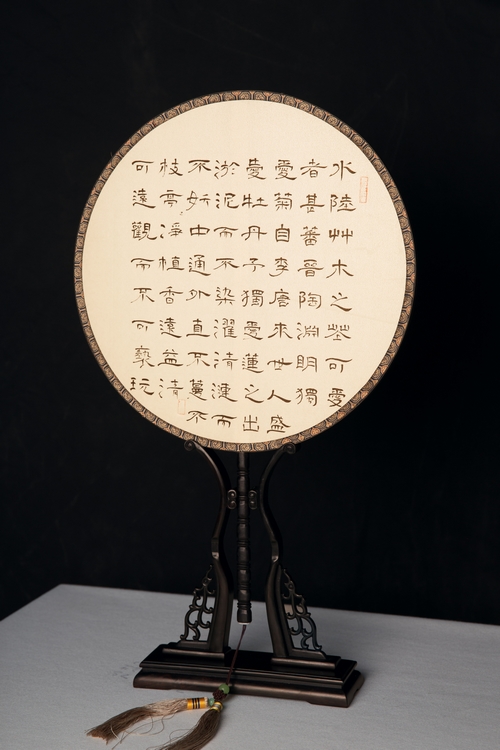 水陸艸木之華可愛
者甚蕃晉陶淵明獨
愛菊自李唐來世人盛
愛牡丹予獨愛蓮之出
淤泥而不染濯清漣而
不妖中通外直不蔓不
枝亭淨植香遠益清
可遠觀而不可褻玩